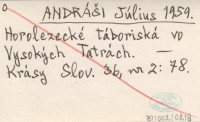 ANDRÁŠI Július 1959.
Horolezecké táboriská vo
Vysokých Tatrách. —
Krásy Slov. 36, nr 2: 78.